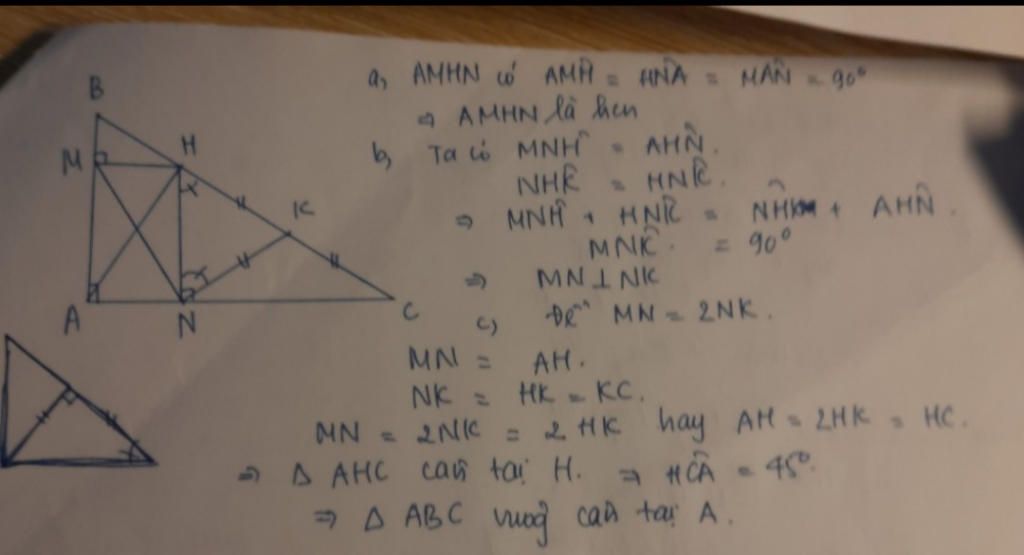 B
M
H
K
A
N
C
a, AMHN có AMĤ = HN̂A = MAN̂ = 90°
⇒ AMHN là hcn
b, Ta có MNĤ = AHN̂.
NHK̂ = HNK̂.
⇒ MNĤ + HNK̂ = NĤK + AHN̂.
MNK̂ = 90°
⇒ MN ⊥ NK
c, Để MN = 2NK.
MN = AH.
NK = HK = KC.
MN = 2NK = 2HK hay AH = 2HK = HC.
⇒ Δ AHC cân tại H. ⇒ HCÂ = 45°.
⇒ Δ ABC vuông cân tại A.